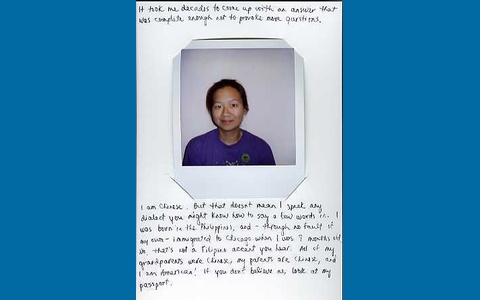 It took me decades to come up with an answer that
was complete enough not to provoke more questions.
I am Chinese. But that doesn't mean I speak any
dialect you might know how to say a few words in. I
was born in the Philippines, and - through no fault of
my own - immigrated to Chicago when I was 9 months old
so, that's not a Filipino accent you hear. All of my
grandparents were Chinese, my parents are Chinese, and
I am American! If you don't believe me, look at my
passport.